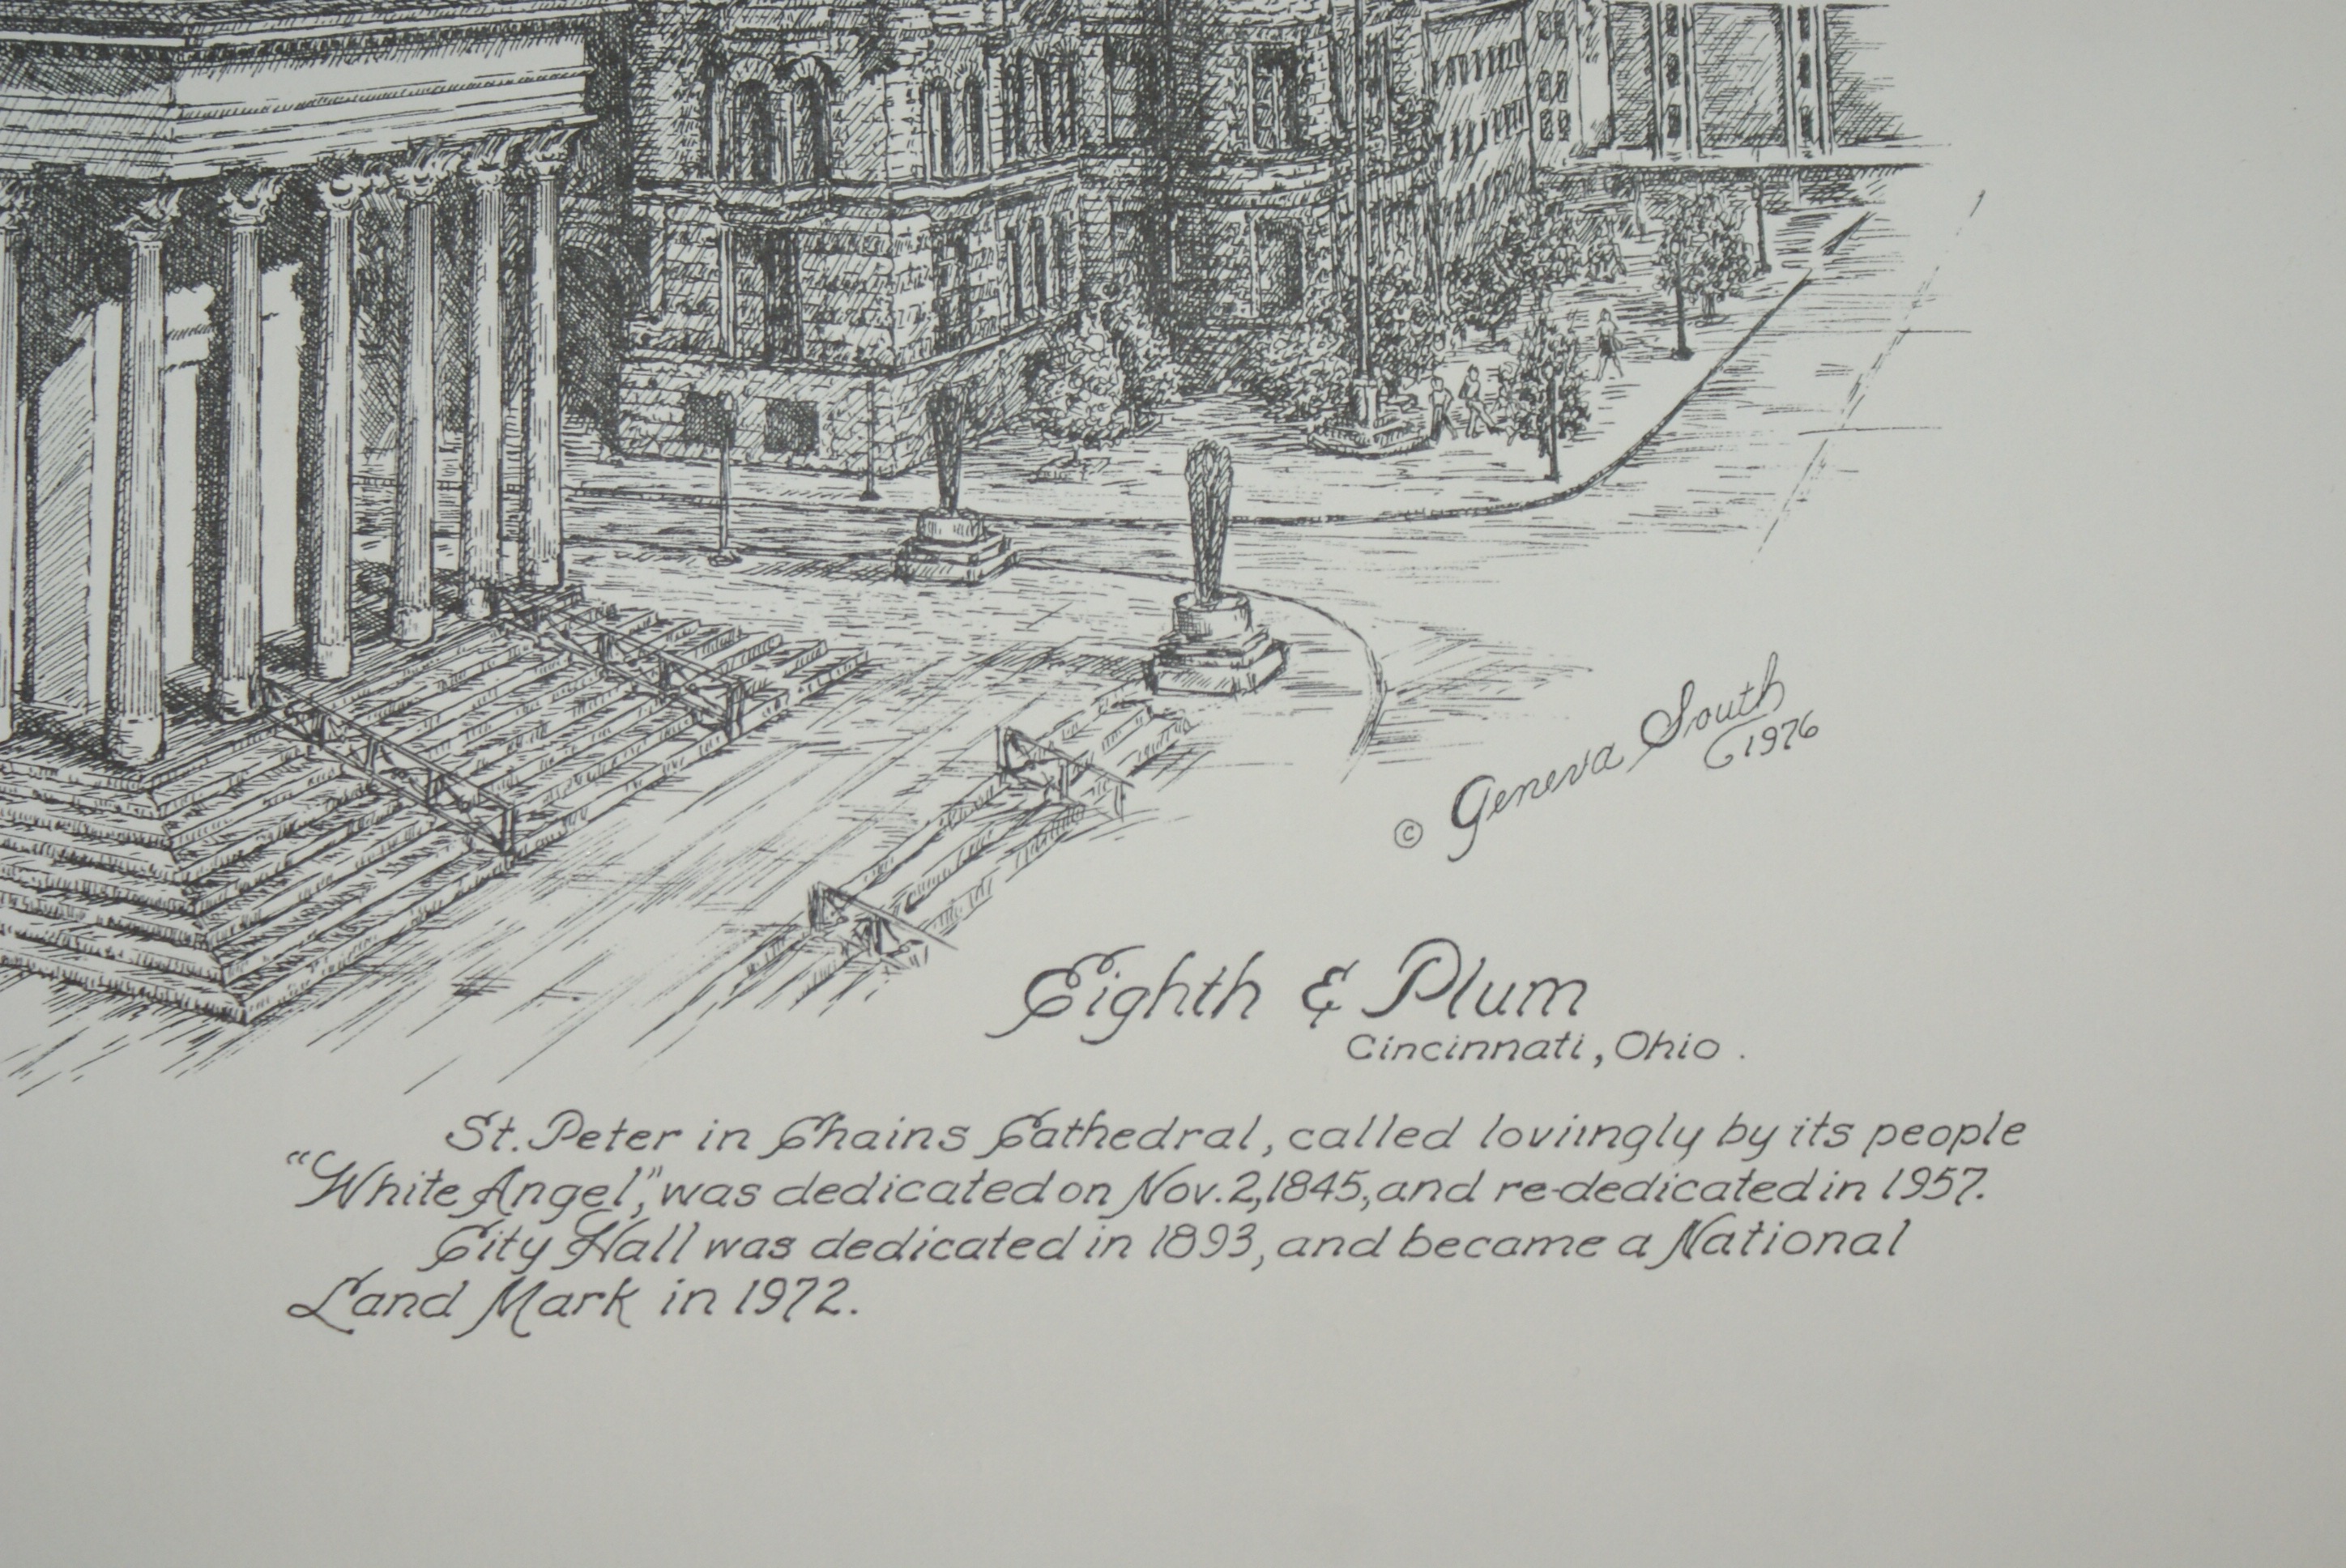 © Geneva South
1976
Eighth & Plum
Cincinnati, Ohio.
St. Peter in Chains Cathedral, called loviingly by its people
"White Angel," was dedicated on Nov. 2, 1845, and re-dedicated in 1957.
City Hall was dedicated in 1893, and became a National
Land Mark in 1972.